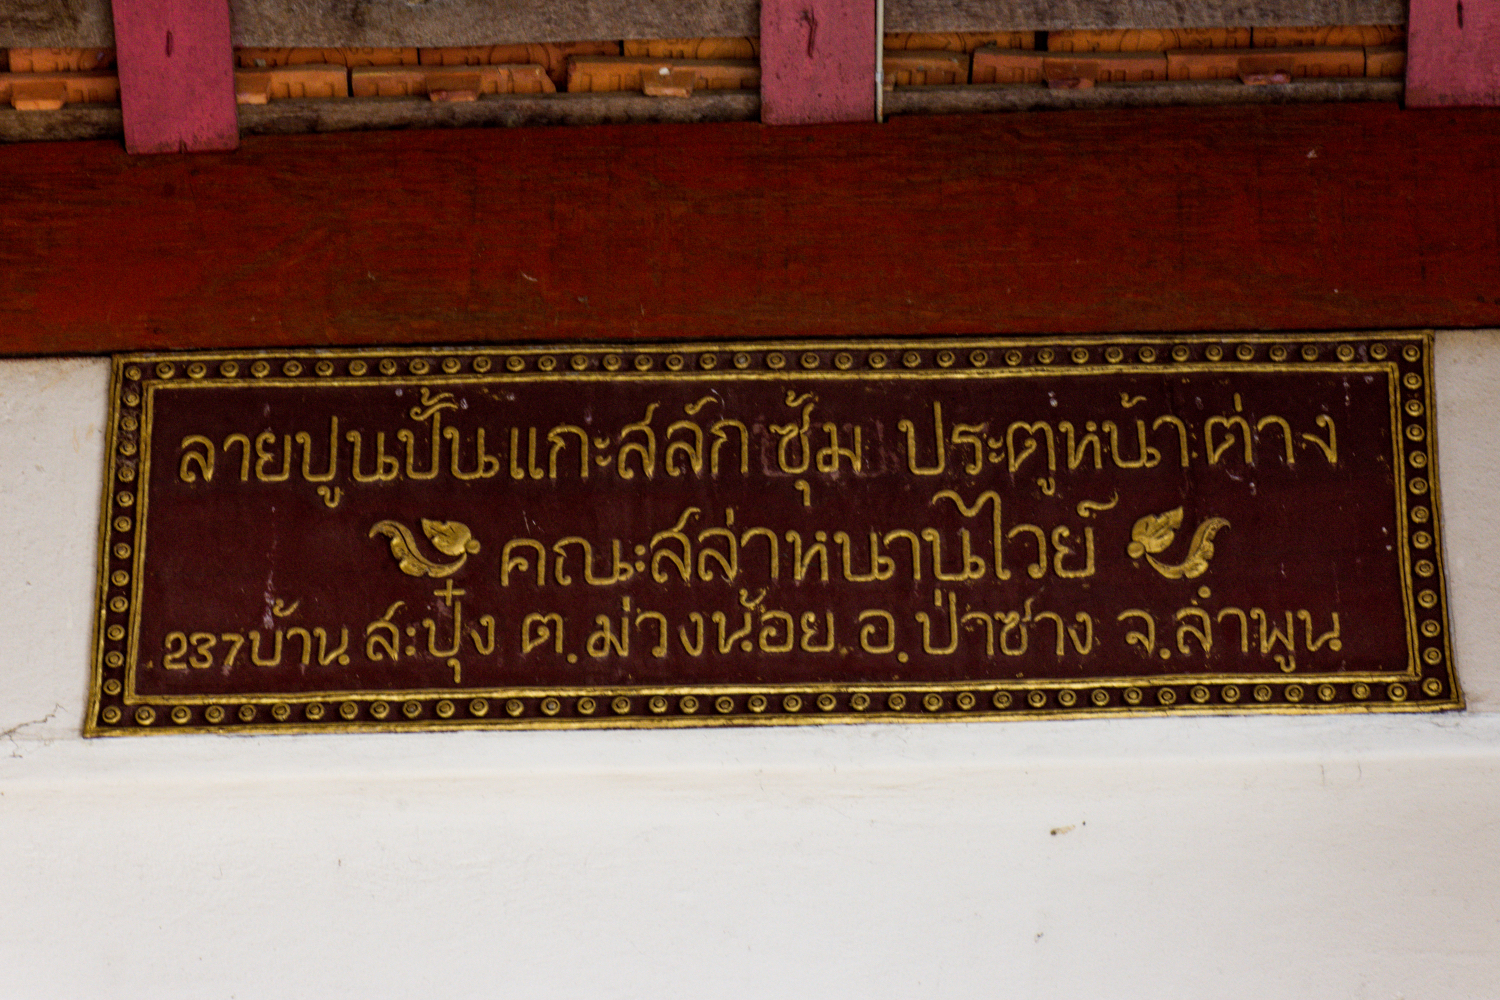 ลายปูนปั้น แกะสลัก ซุ้ม ประตูหน้าต่าง
คณะสล่าหนานไวย์
237 บ้าน สะปุ๋ง ต.ม่วงน้อย อ.ป่าซาง จ.ลำพูน